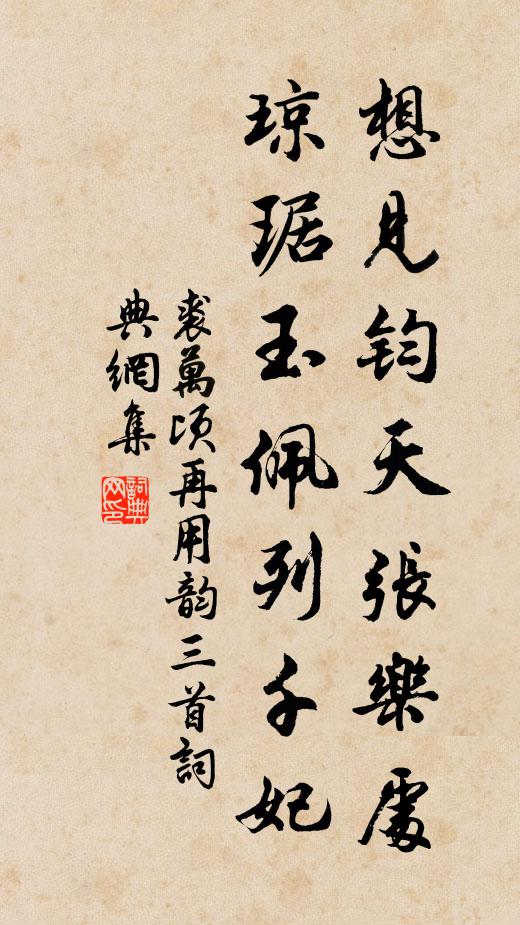 想見鈞天張樂處
瓊琚玉佩列千妃
裘萬頃再用韵三首詞
典網集
詞典
网印